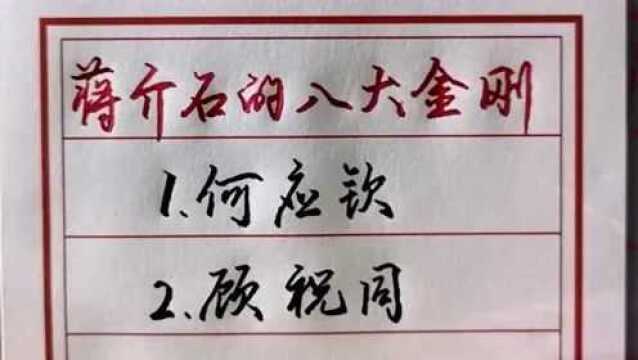 蒋介石的八大金刚
1.何应钦
2.顾祝同